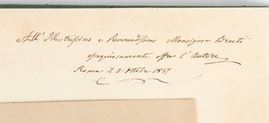 All' Illustrissimo e Reverendissimo Monsignor
ossequiosamente offre l'Autore
Roma il 2 Ottobre 1857